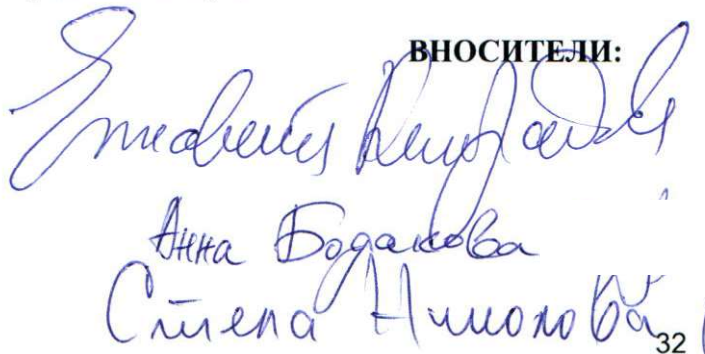 ВНОСИТЕЛИ:
Анна Бодакова
Стела Николова
32